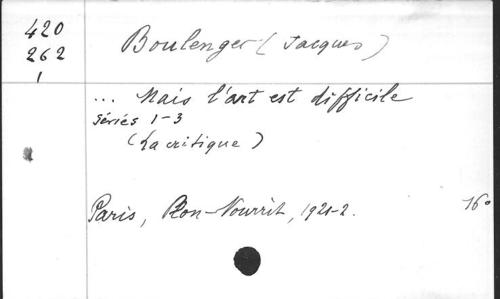 420
262
1
Boulenger (Jacques)
... Mais l'art est difficile
Séries 1-3
(La critique)
Paris, Plon-Nourrit, 1921-2. 16°